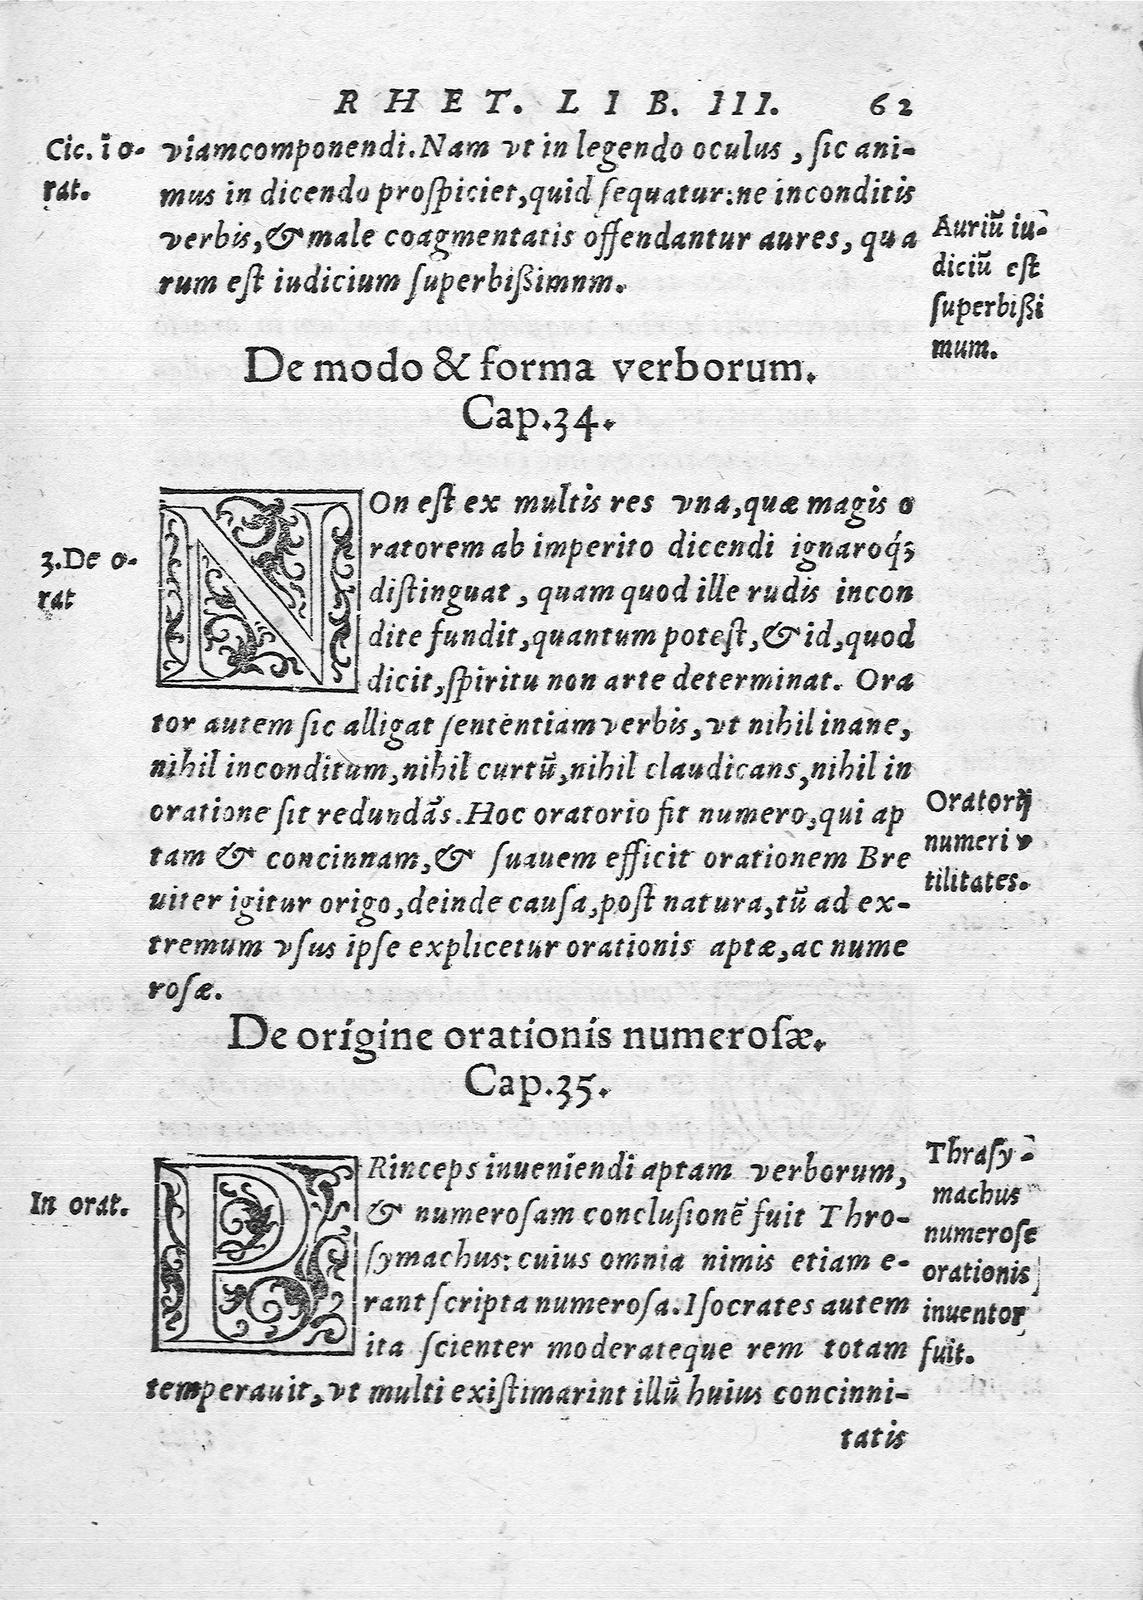 RHET. LIB. III. 62
Cic. ī o-
rat.
viamcomponendi. Nam vt in legendo oculus, ſic ani-
mus in dicendo proſpiciet, quid ſequatur: ne inconditis
verbis, & male coagmentatis offendantur aures, qua
rum eſt iudicium ſuperbißimnm.
Auriū iu-
diciū eſt
ſuperbißi
mum.
De modo & forma verborum.
Cap. 34.
3. De o-
rat
NOn eſt ex multis res vna, quæ magis o
ratorem ab imperito dicendi ignaroq́ꝫ
diſtinguat, quam quod ille rudis incon
dite fundit, quantum poteſt, & id, quod
dicit, ſpiritu non arte determinat. Ora
tor autem ſic alligat ſententiam verbis, vt nihil inane,
nihil inconditum, nihil curtū, nihil claudicans, nihil in
oratione ſit redundās. Hoc oratorio fit numero, qui ap
tam & concinnam, & ſuauem efficit orationem Bre
uiter igitur origo, deinde cauſa, poſt natura, tū ad ex-
tremum vſus ipſe explicetur orationis aptæ, ac nume
roſæ.
Oratorij
numeri v
tilitates.
De origine orationis numeroſæ.
Cap. 35.
In orat.
PRinceps inueniendi aptam verborum,
& numeroſam concluſionē fuit Thro-
ſymachus: cuius omnia nimis etiam e-
rant ſcripta numeroſa. Iſocrates autem
ita ſcienter moderateque rem totam
temperauit, vt multi exiſtimarint illū huius concinni-
tatis
Thraſy-
machus
numeroſe
orationis
inuentor
fuit.